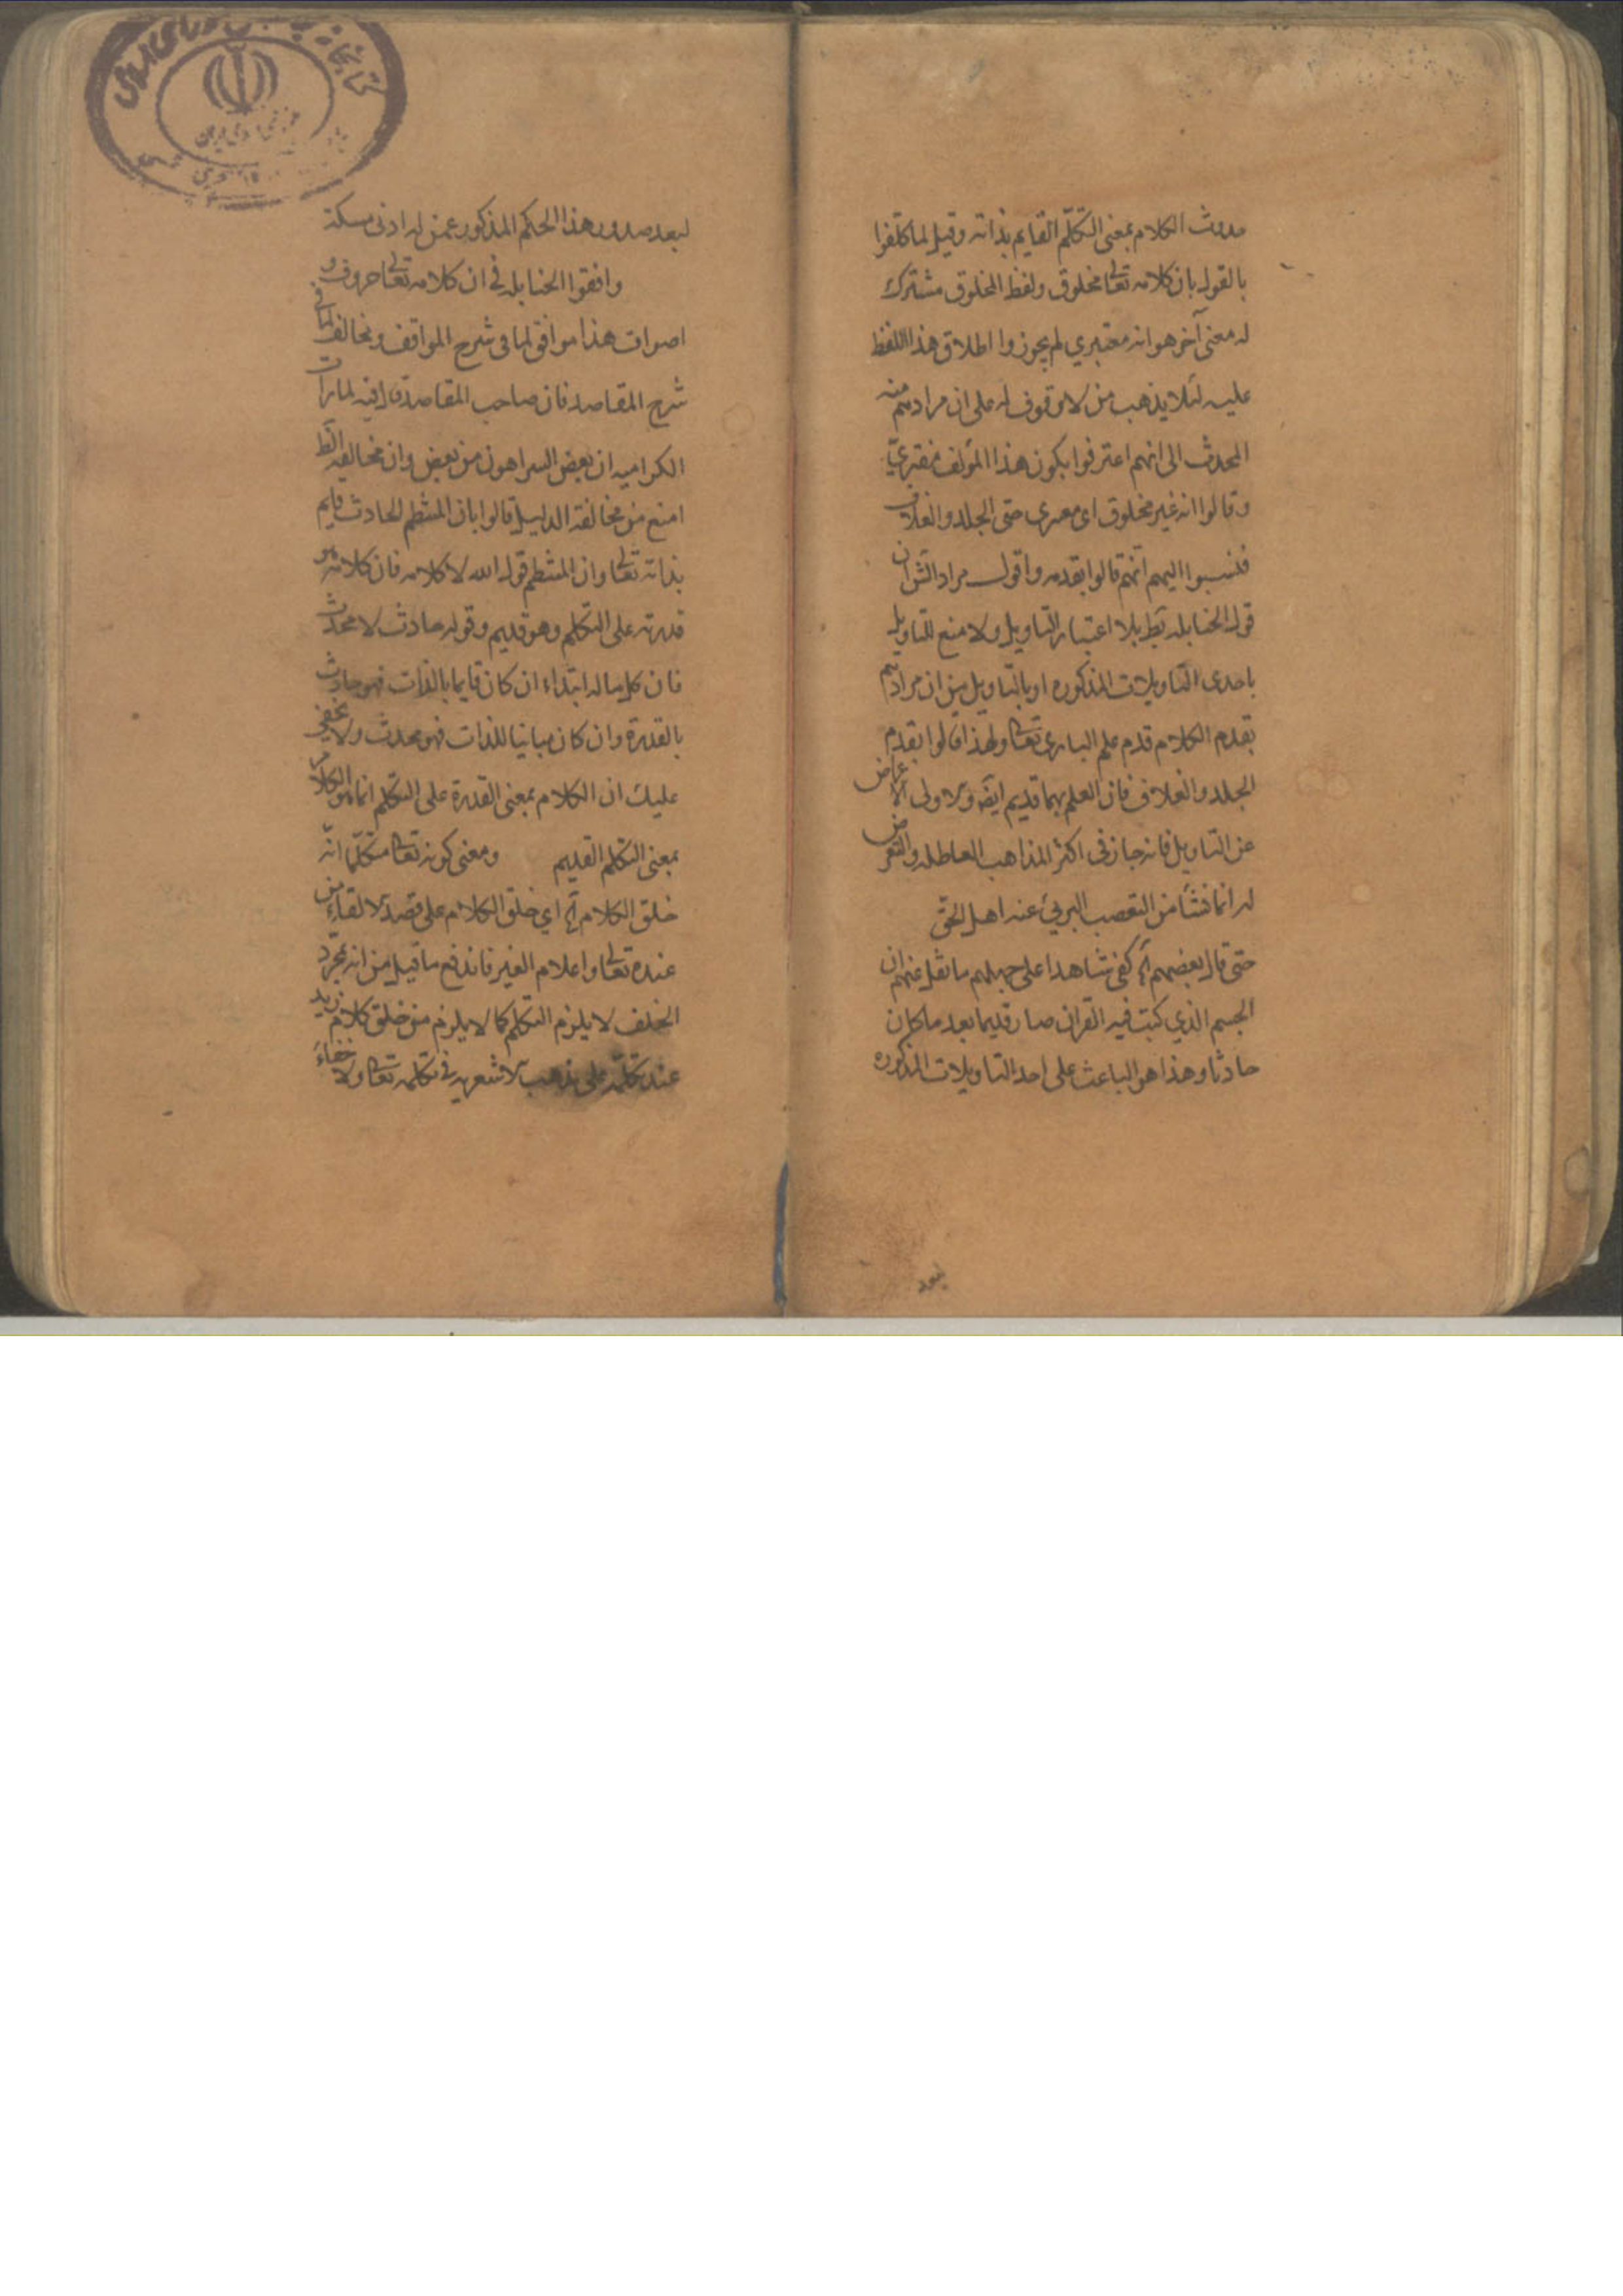 حدوث الكلام بمعنى التكلّم القايم بذاته وقيل لما كلفوا
بالقول بان كلامه تعالى مخلوق ولفظ المخلوق مشترك
له معنى آخر هو انه مفتري لم يجوزوا اطلاق هذا اللفظ
عليه لئلا يذهب من لا وقوف له على ان مرادهم منه
المحدث الى انهم اعترفوا بكون هذا المؤلف مفتريّ
وقالوا انه غير مخلوق اى مفترى حتى الجلد والغلاف
فنسبوا اليهم انّهم قالوا بقدمه واقول مراد الش ان
قول الحنابله بط بلا اعتبار التاويل ولا منع للتاويل
باحدى التاويلات المذكوره او بالتاويل من ان مرادهم
بقدم الكلام قدم علم البارى تعالى ولهذا قالوا بقدم
الجلد والغلاف فان العلم بهما قديم ايضه والاولى الاعراض
عن التاويل فانه جاز فى اكثر المذاهب العاطله والتعرض
له انما نشأ من التعصب البرئ عنه اهل الحقّ
حتى قال بعضهم آه كفى شاهدا على جهلهم ما نقل عنهم ان
الجسم الذي كتبت فيه القران صار قديما بعد ما كان
حادثا وهذا هو الباعث على احد التاويلات المذكوره
لبعد
لبعد صدور هذا الحكم المذكور عمن له ادنى مسكة
وافقوا الحنابله فى ان كلامه تعالى حروف و
اصوات هذا موافق لما فى شرح المواقف ومخالف لما فى
شرح المقاصد فان صاحب المقاصد قال فيه لما رات
الكراميه ان بعض الشر اهون من بعض وان مخالفه الض
اشنع من مخالفة الدليل قالوا بان المنتظم الحادث قايم
بذاته تعالى وان المنتظم قول الله لا كلامه فان كلامه هو
قدرته على التكلم وهو قديم وقوله حادث لا محدث
فان كل ما له ابتداء ان كان قايما بالذات فهو حادث
بالقدرة وان كان مباينا للذات فهو محدث ولا يخفى
عليك ان الكلام بمعنى القدرة على التكلم انما هو الكلام
بمعنى التكلم القديم ومعنى كونه تعالى متكلّما انّه
خلق الكلام آه اي خلق الكلام على قصد الالقاء من
عنده تعالى واعلام الغير فاندفع ما قيل من انه بمجرّد
الخلق لا يلزم التكلم كما لا يلزم من خلق كلام زيد
عند تكلمه على مذهب الاشعريه فى تكلمه تعالى ولا خفاء